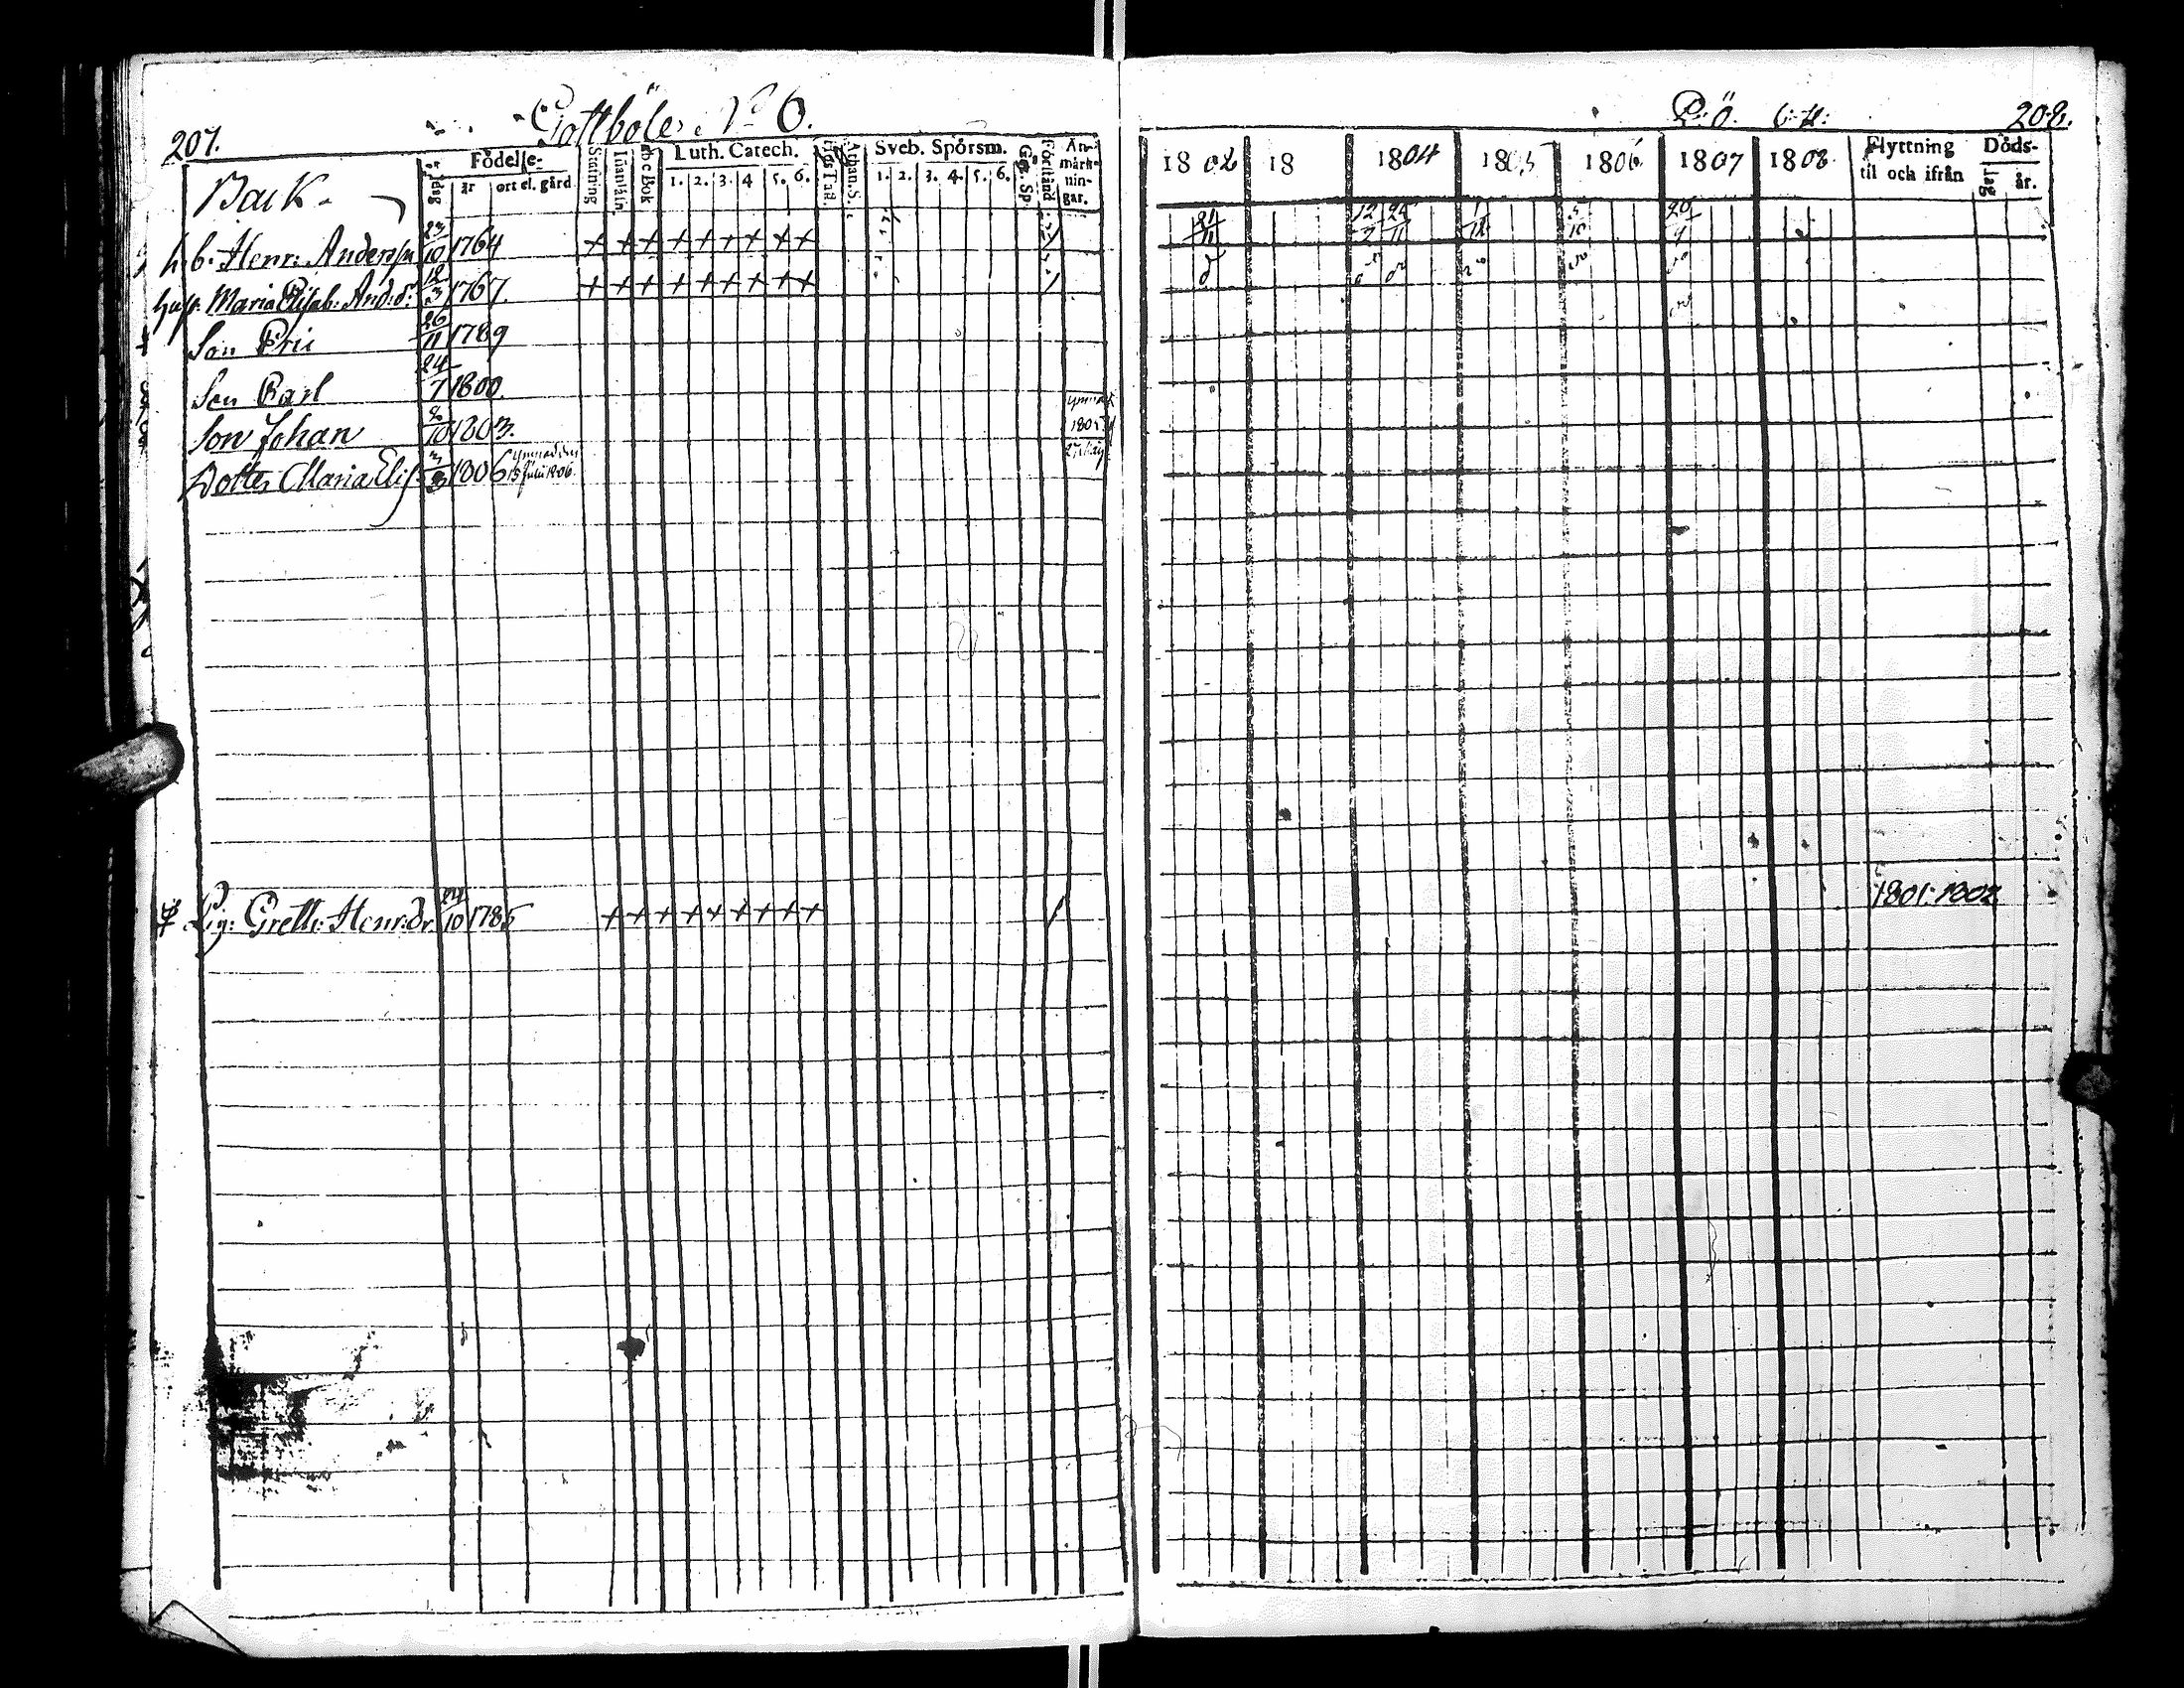 207. Gottböle N:o 6.
Back
Födelse-
dag år ort el. gård
Stafning
Innanläsn.
ab c Bok
Luth. Catech.
1. 2. 3. 4 5. 6.
Athan. S.
Sveb. Spörsm.
1. 2. 3. 4. 5. 6.
Geg. Sp.
Förstånd
An-
märk-
nin-
gar.
h.b. Henr: Anderss: 23/10 1764 + + + + + + + + +
hust. Maria Elisab: And:dr 12/3 1767. + + + + + + + + +
Son Eric 26/11 1789
Son Carl 24/7 1800.
Son Johan 8/10 1803. 1805
Dotter Maria Elis: 3/3 1806 ympad den 13 Juli 1806.
Pig: Greth: Henr:dr 24/10 1785 + + + + + + + + + /
R:Ö. 6:H: 208.
18 02 18 1804 1805 1806 1807 1808
Flyttning
til och ifrån
Döds-
dag år.
21/11 12/2 25/11 1/12 20/9
1801: 1802